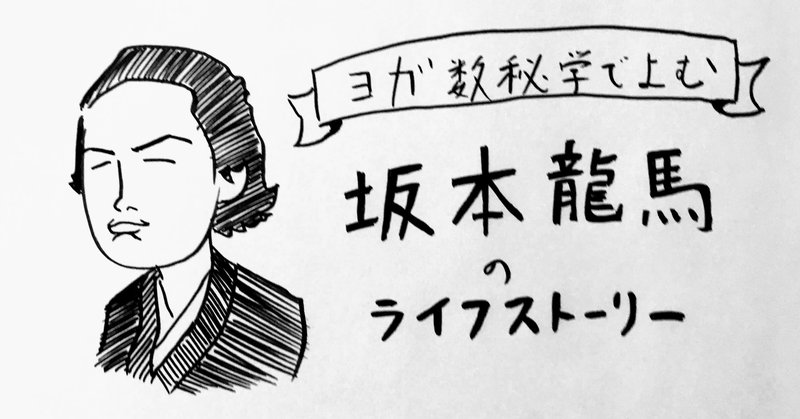 ヨガ数秘学でよむ
坂本龍馬
の
ライフストーリー